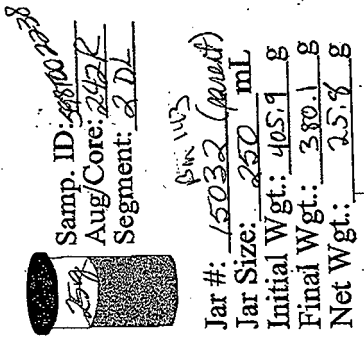 Samp. ID: S98T002238
Aug/Core: 242R
Segment: 2 DL
25g
Bin 143
Jar #: 15032 (parent)
Jar Size: 250 mL
Initial Wgt.: 405.9 g
Final Wgt.: 380.1 g
Net Wgt.: 25.8 g